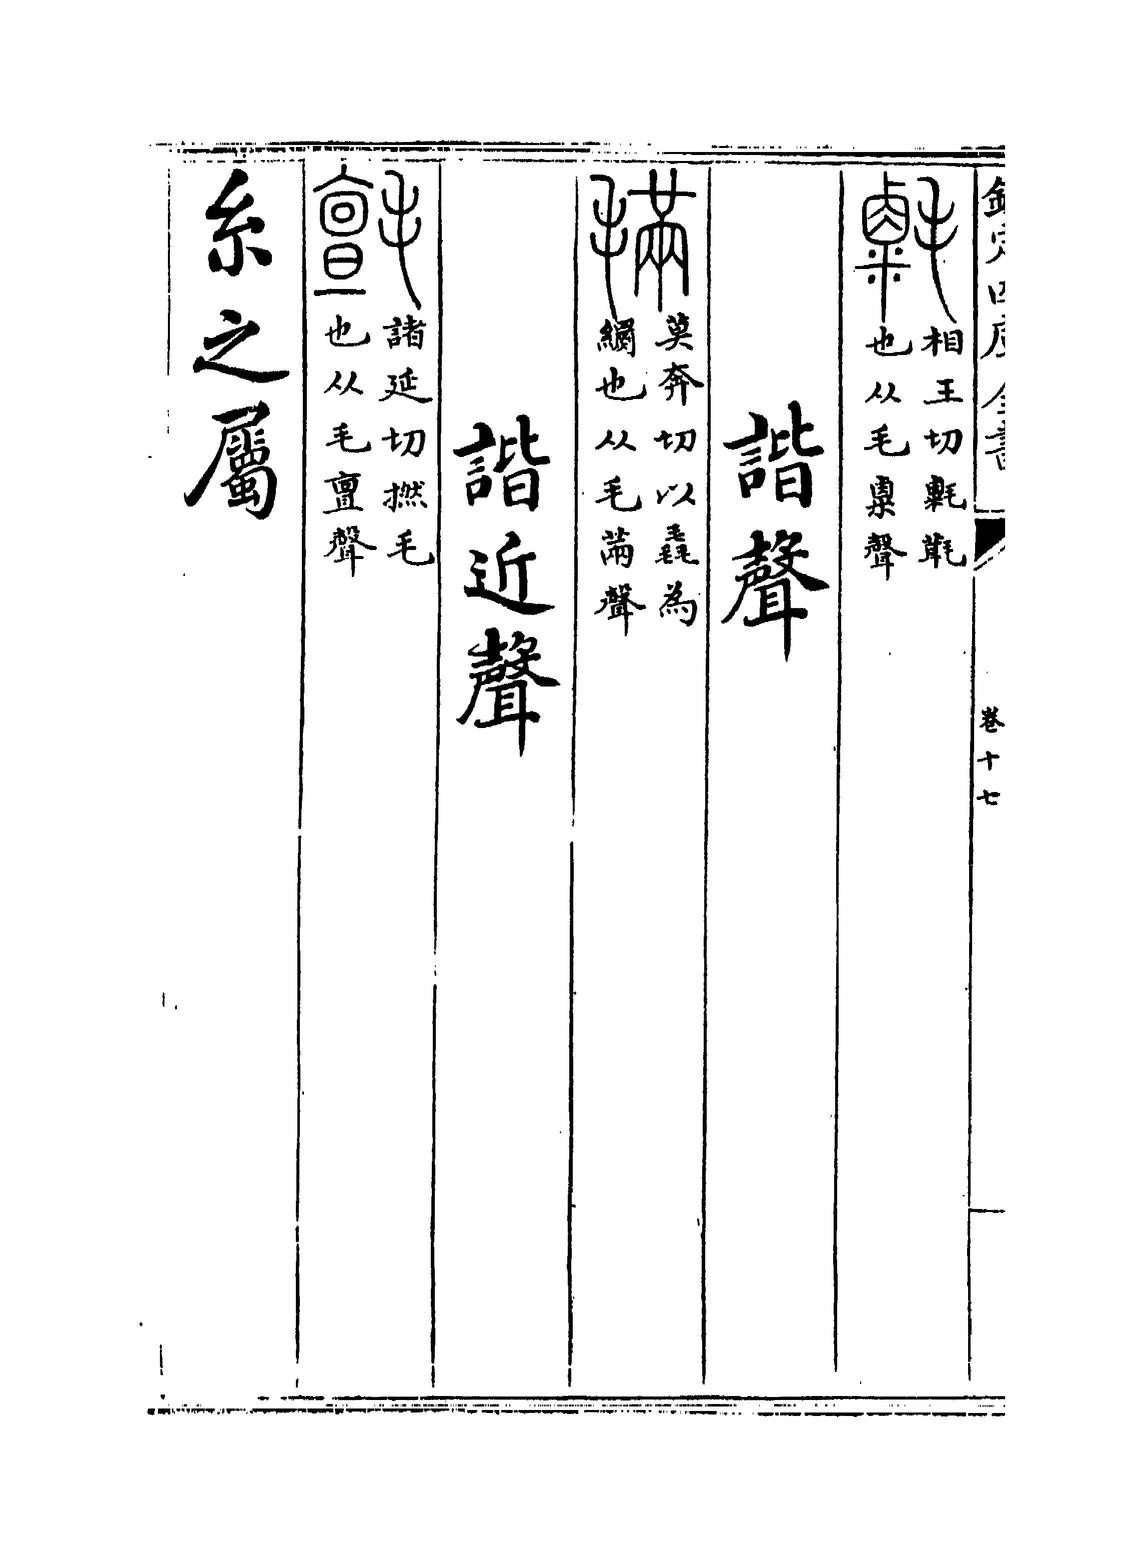 欽定四庫全書
卷十七
相玉切
也从毛㮚聲
諧聲
莫奔切以毳為
繝也从毛㒼聲
諧近聲
諸延切撚毛
也从毛亶聲
糸之屬